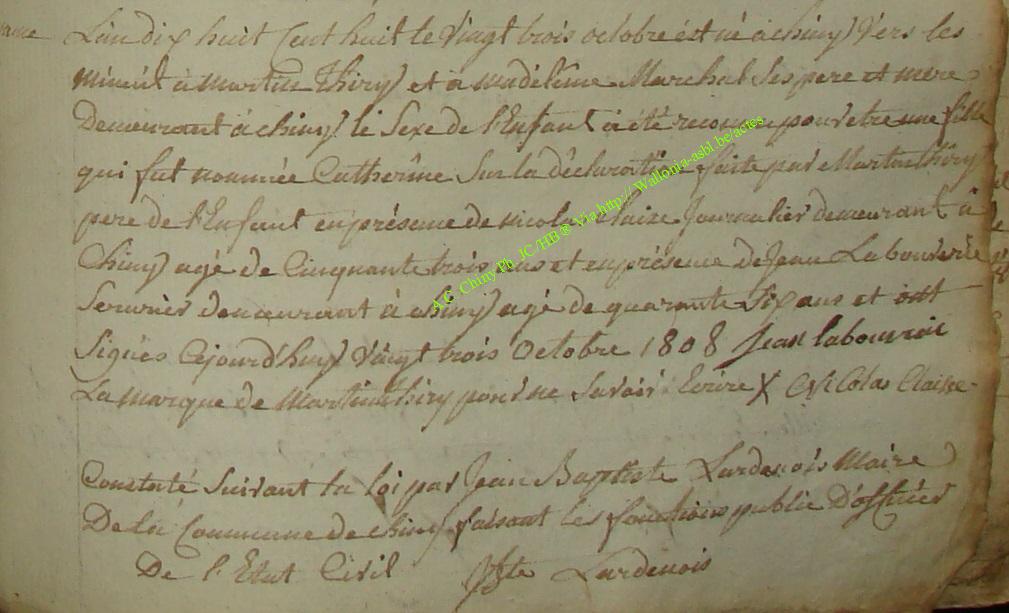 L'an dix huit Cent huit le Vingt trois octobre est né a chiny Vers les
minuit à martin thiry et à madeleine Marchal Ses pere et mere
Demeurant à chiny le Sexe de l'Enfant a été reconnu pour etre une fille
qui fut nommée Catherine Sur la déclaration faite par Martin thiry
pere de l'Enfant en présence de nicolas Claise Journalier demeurant à
Chiny agé de Cinquante trois ans et en présence de Jean Labouverie
demeurant à chiny agé de quarante Six ans et ont
Signés Cejourd'huy Vingt trois Octobre 1808 Jean labouverie
La marque de Martin thiry pour ne Savoir Ecrire X Nicolas Claise
Constaté Suivant la loi par Jean Baptiste Lardenois Maire
De la Commune de chiny faisant les fonctions public D'officier
De l'Etat Civil Bte Lardenois
A.C. Chiny Ph JC/HB ® Via http://Wallonia-asbl.be/actes